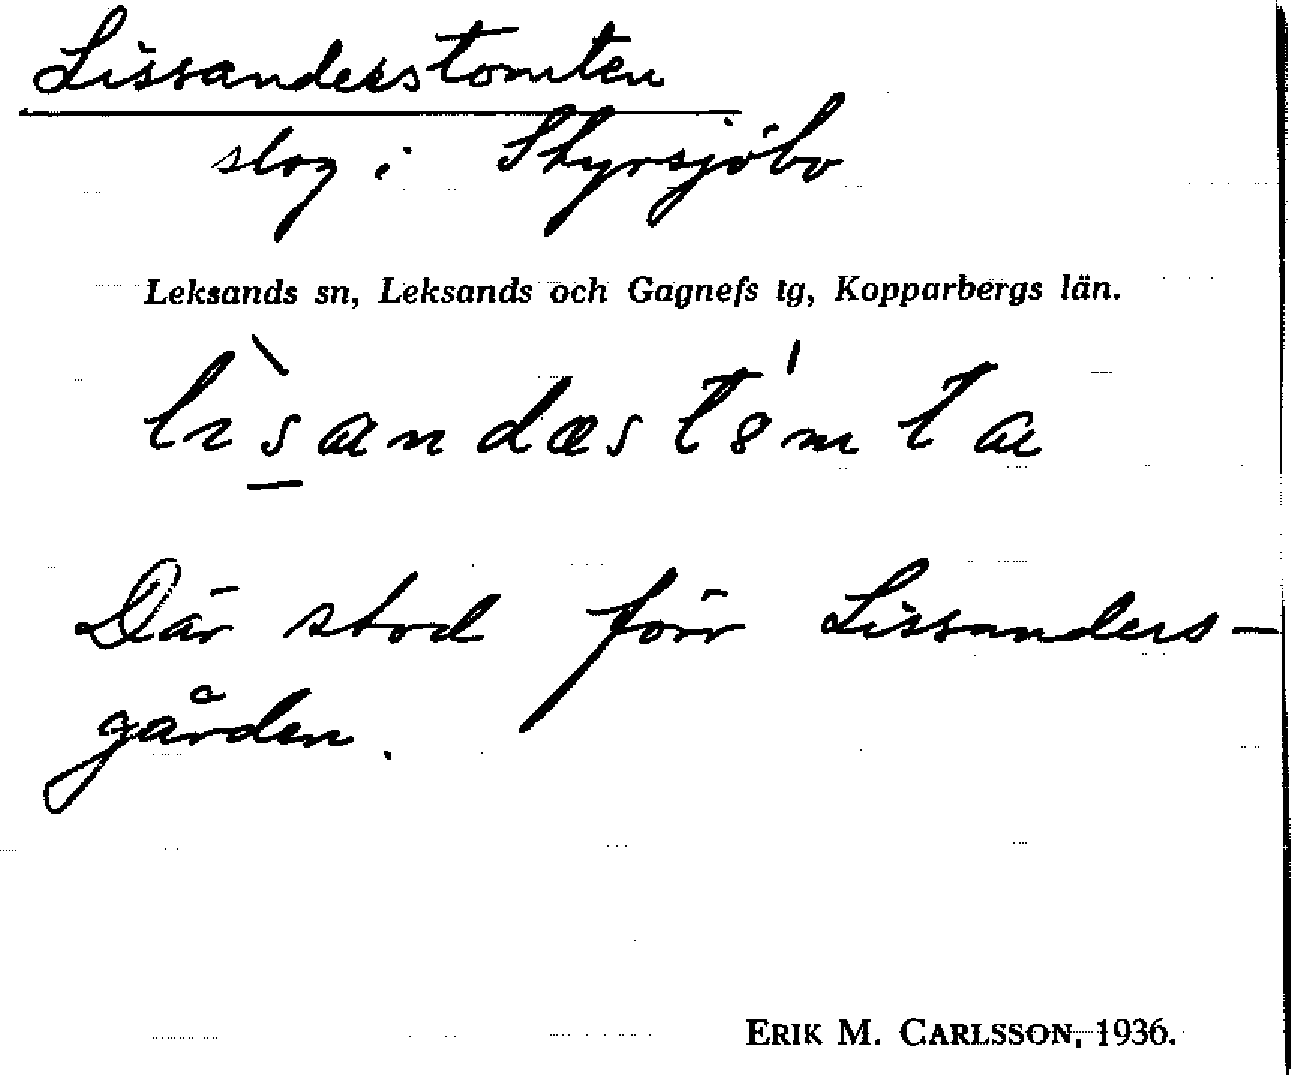 Lissanderstomten
slog i Styrsjöbo
Leksands sn, Leksands och Gagnefs tg, Kopparbergs län.
lɪ̀s̱andæstȣ́mta
Där stod förr Lissanders-
gården.
ERIK M. CARLSSON, 1936.